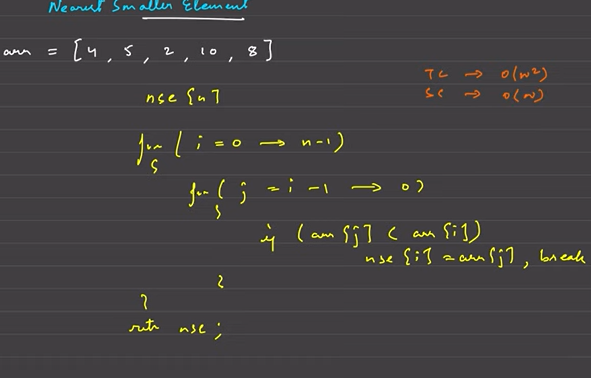 Nearest Smaller Element
arr = [4, 5, 2, 10, 8]
TC → O(n²)
SC → O(n)
nse[n]
for (i = 0 → n-1)
{
for (j = i - 1 → 0)
{
if (arr[j] < arr[i])
nse[i] = arr[j], break
}
}
retn nse;